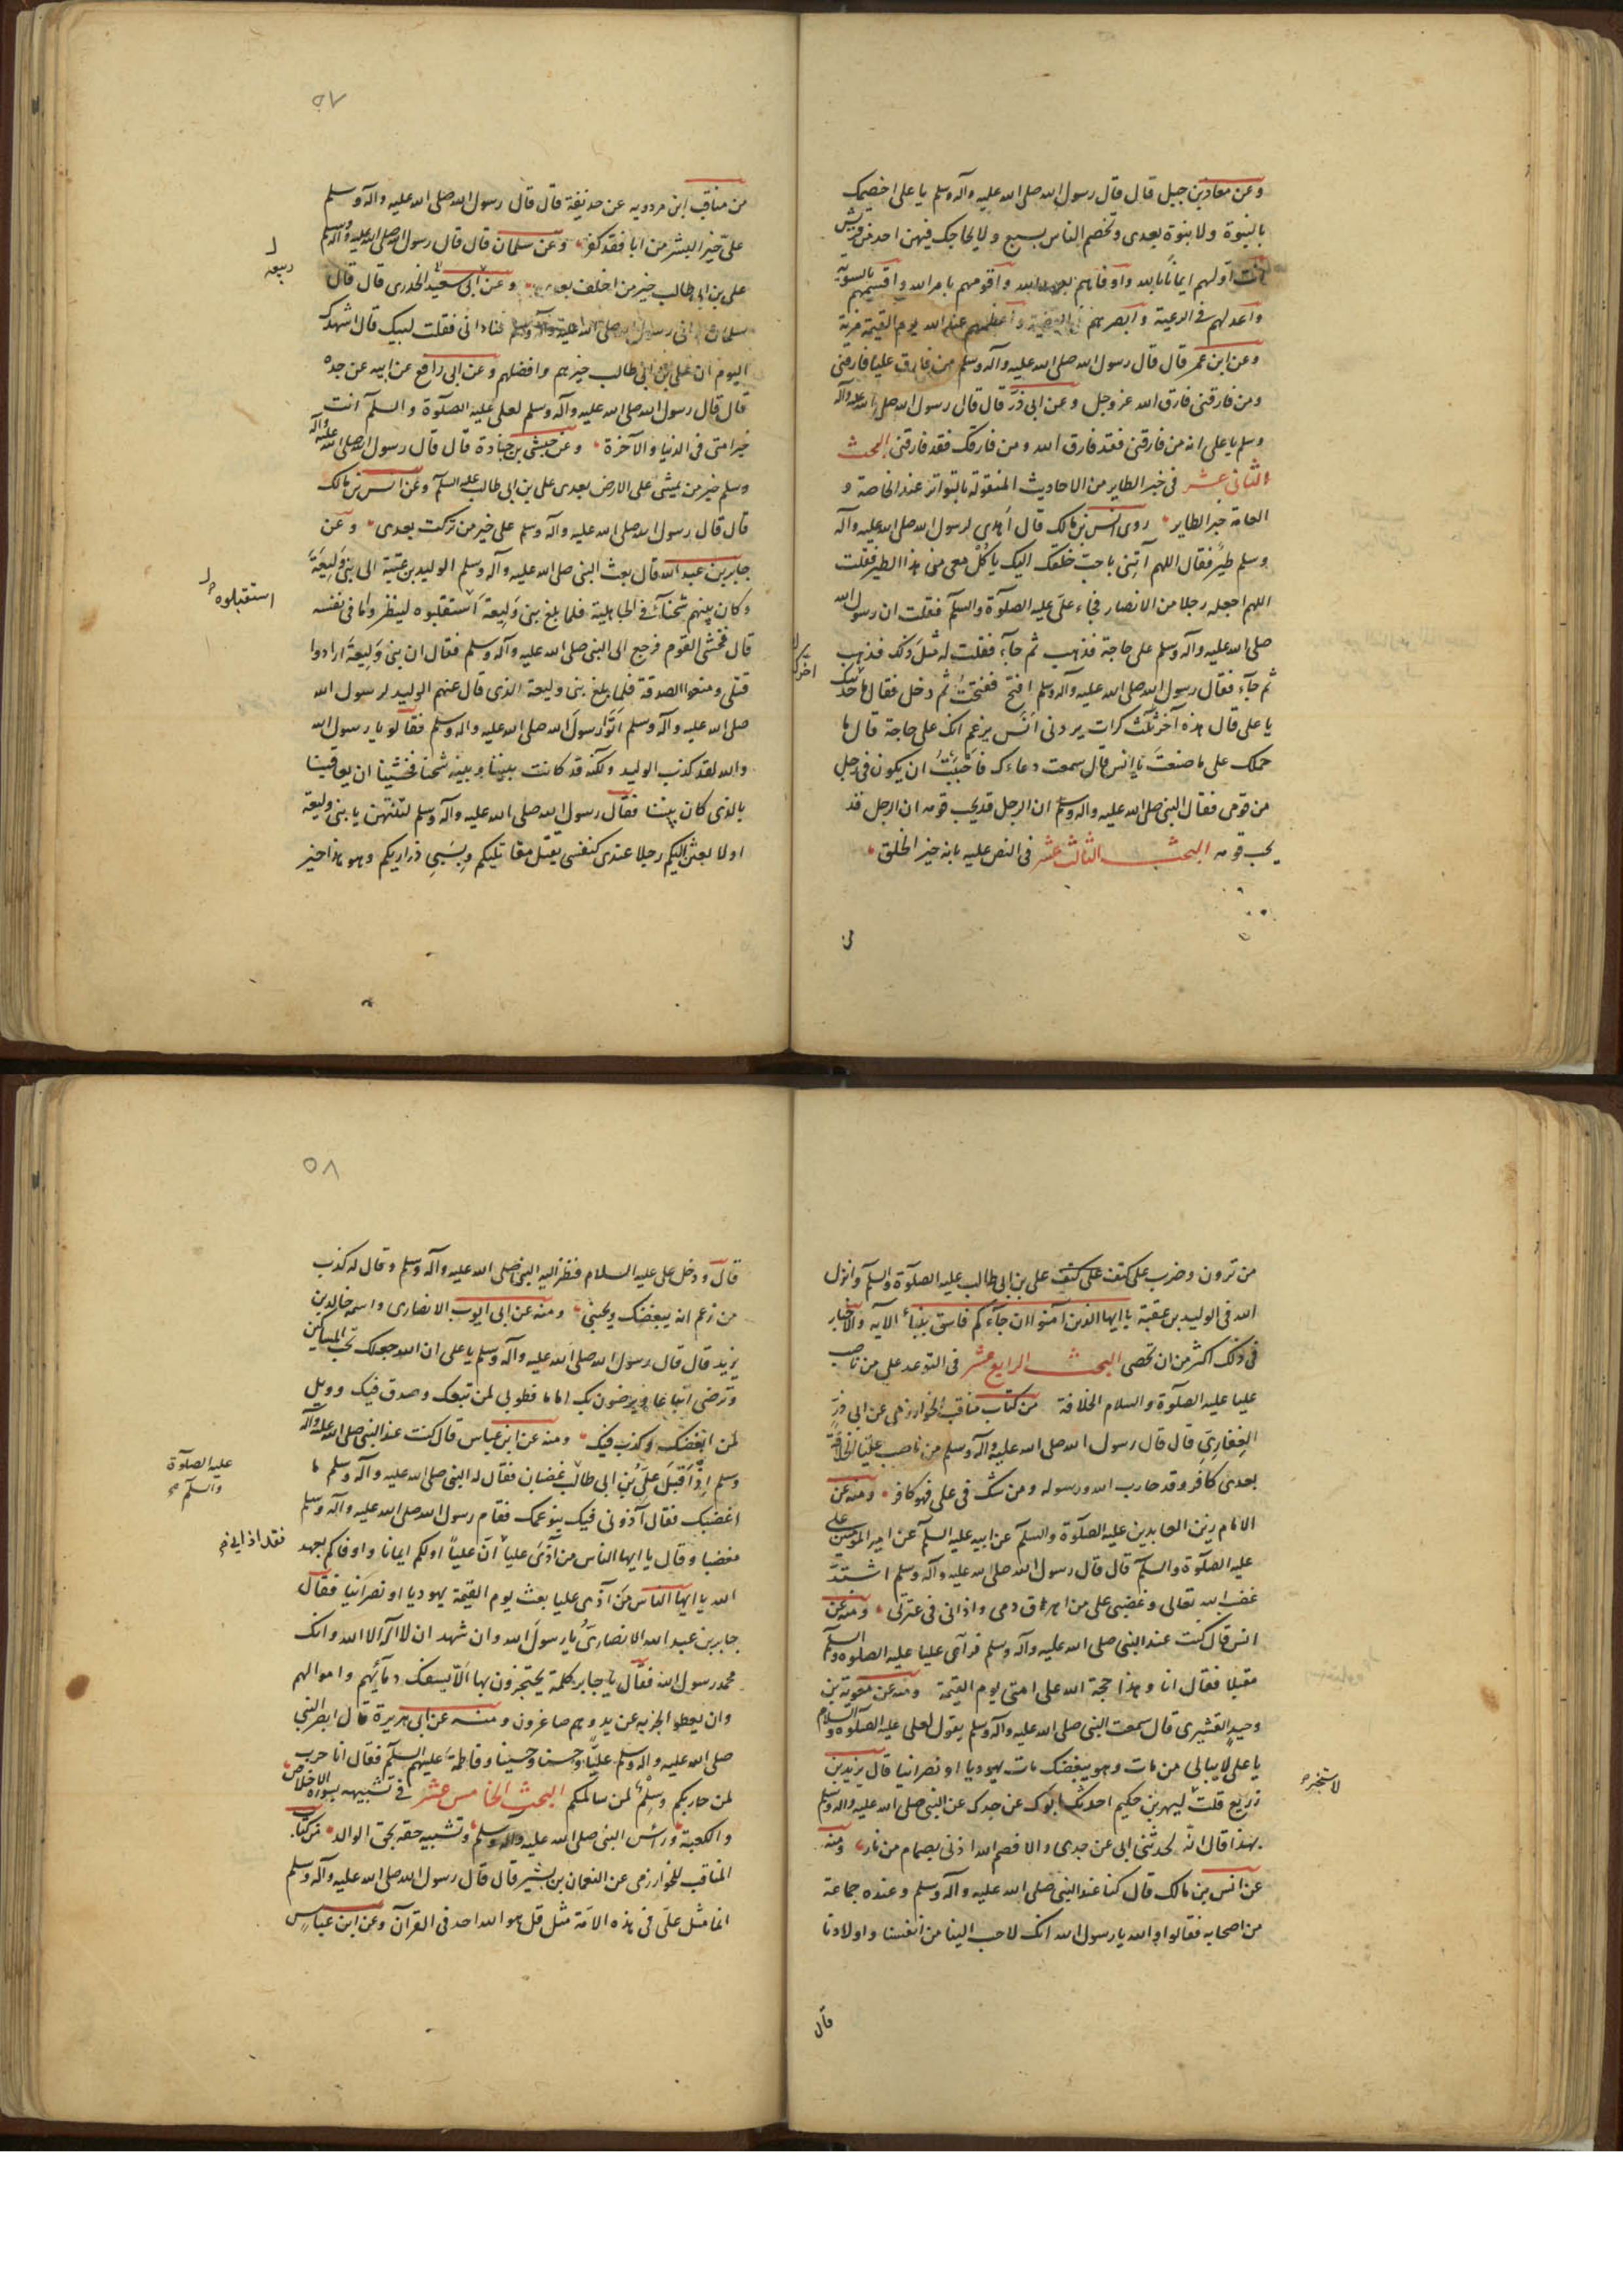 وعن معاذ بن جبل قال قال رسول الله صلى الله عليه وآله وسلم يا على اخصمك
بالنبوة ولا نبوة بعدى وتخصم الناس بسبع ولا يحاجك فيهن احد من قريش
انت اولهم ايمانا بالله واوفاهم بعهد الله واقومهم بامر الله واقسمهم بالسوية
واعدلهم فى الرعية وابصرهم فى القضية واعظمهم عند الله يوم القيمة مزية
وعن ابن عمر قال قال رسول الله صلى الله عليه وآله وسلم من فارق عليا فارقنى
ومن فارقنى فارق الله عز وجل وعن ابى ذر قال قال رسول الله صلى الله عليه وآله
وسلم يا على انه من فارقنى فقد فارق الله ومن فارقك فقد فارقنى البحث
الثانى عشر فى خبر الطاير من الاحاديث المنقولة بالتواتر عند الخاصة و
العامة خبر الطاير روى انس بن مالك قال اهدى لرسول الله صلى الله عليه وآله
وسلم طير فقال اللهم آتنى باحب خلقك اليك ياكل معى من هذا الطير فقلت
اللهم اجعله رجلا من الانصار فجاء على عليه الصلوة والسلم فقلت ان رسول الله
صلى الله عليه وآله وسلم على حاجة فذهب ثم جآء فقلت له مثل ذلك فذهب
ثم جآء فقال رسول الله صلى الله عليه وآله وسلم افتح ففتحت ثم دخل فقال ما حدثك
يا على قال هذه آخر ثلث كرات يردنى انس يزعم انك على حاجة قال ما
حملك على ما صنعت يا انس قال سمعت دعاءك فاحببت ان يكون فى رجل
من قومى فقال النبى صلى الله عليه وآله وسلم ان الرجل قد يحب قومه ان الرجل قد
يحب قومه البحث الثالث عشر فى النص عليه بانه خير الخلق
٥٧
من مناقب ابن مردويه عن حذيفة قال قال رسول الله صلى الله عليه وآله وسلم
على خير البشر من ابا فقد كفر وعن سلمان قال قال رسول الله صلى الله عليه وآله وسلم
على بن ابى طالب خير من اخلف بعدى وعن ابى سعيد الخدرى قال قال
سلمان رانى رسول الله صلى الله عليه وآله وسلم فنادانى فقلت لبيك قال اشهدك
اليوم ان على بن ابى طالب خيرهم وافضلهم وعن ابى رافع عن ابيه عن جده
قال قال رسول الله صلى الله عليه وآله وسلم لعلى عليه الصلوة والسلم انت
خير امتى فى الدنيا والآخرة وعن حبشى بن جنادة قال قال رسول الله صلى الله عليه وآله
وسلم خير من يمشى على الارض بعدى على بن ابى طالب عليه السلم وعن انس بن مالك
قال قال رسول الله صلى الله عليه وآله وسلم على خير من تركت بعدى وعن
جابر بن عبد الله قال بعث النبى صلى الله عليه وآله وسلم الوليد بن عتبة الى بنى وليعة
وكان بينهم شحنآء فى الجاهلية فلما بلغ بنى وليعة استقبلوه لينظروا ما فى نفسه
استقبلوه
قال فخشى القوم فرجع الى النبى صلى الله عليه وآله وسلم فقال ان بنى وليعة ارادوا
قتلى ومنعوا الصدقة فلما بلغ بنى وليعة الذى قال عنهم الوليد لرسول الله
صلى الله عليه وآله وسلم اتوا رسول الله صلى الله عليه وآله وسلم فقالوا يا رسول الله
والله لقد كذب الوليد ولكنه قد كانت بيننا وبينه شحنا فخشينا ان يعاقبنا
بالذى كان بيننا فقال رسول الله صلى الله عليه وآله وسلم لتنتهن يا بنى وليعة
او لابعثن اليكم رجلا عندى كنفسى يقتل مقاتليكم ويسبى ذراريكم وهو هذا خير
من ترون وضرب على كتف على بن ابى طالب عليه الصلوة والسلم وانزل
الله فى الوليد بن عقبة يا ايها الذين آمنوا ان جآءكم فاسق بنبأ الآية والاخبار
فى ذلك اكثر من ان تحصى البحث الرابع عشر فى التوعد على من ناصب
عليا عليه الصلوة والسلام الخلافة من كتاب مناقب الخوارزمى عن ابى ذر
الغفارى قال قال رسول الله صلى الله عليه وآله وسلم من ناصب عليا الخلافة
بعدى كافر وقد حارب الله ورسوله ومن شك فى على فهو كافر ومنه عن
الامام زين العابدين عليه الصلوة والسلم عن ابيه عليه السلم عن امير المؤمنين على
عليه الصلوة والسلم قال قال رسول الله صلى الله عليه وآله وسلم اشتد
غضب الله تعالى وغضبى على من اهراق دمى واذانى فى عترتى ومنه عن
انس قال كنت عند النبى صلى الله عليه وآله وسلم فرآى عليا عليه الصلوة والسلم
مقبلا فقال انا وهذا حجة الله على امتى يوم القيمة ومنه عن معوية بن
وحيد القشيرى قال سمعت النبى صلى الله عليه وآله وسلم يقول لعلى عليه الصلوة والسلام
يا على لا يبالى من مات وهو يبغضك مات يهوديا او نصرانيا قال يزيد بن
زريع قلت لبهز بن حكيم احدثك ابوك عن جدك عن النبى صلى الله عليه وآله وسلم
بهذا قال الله لحدثنى ابى عن جدى والا فصم الله اذنى بصمام من نار ومنه
عن انس بن مالك قال كنا عند النبى صلى الله عليه وآله وسلم وعنده جماعة
من اصحابه فقالوا والله يا رسول الله انك لاحب الينا من انفسنا واولادنا
قال
٥٨
قال ودخل على عليه السلام فنظر اليه النبى صلى الله عليه وآله وسلم وقال له كذب
من زعم انه يبغضك ويحبنى ومنه عن ابى ايوب الانصارى واسمه خالد بن
يزيد قال قال رسول الله صلى الله عليه وآله وسلم يا على ان الله جعلك تحب المساكين
وترضى اتباعا ويرضون بك اماما فطوبى لمن تبعك وصدق فيك وويل
لمن ابغضك وكذب فيك ومنه عن ابن عباس قال كنت عند النبى صلى الله عليه وآله
وسلم اذ اقبل على بن ابى طالب غضبان فقال له النبى صلى الله عليه وآله وسلم ما
عليه الصلوة
والسلم
اغضبك فقال آذونى فيك بنو عمك فقام رسول الله صلى الله عليه وآله وسلم
مغضبا وقال يا ايها الناس من آذى عليا ان عليا اولكم ايمانا واوفاكم بعهد
فقد اذانى
الله يا ايها الناس من آذى عليا بعث يوم القيمة يهوديا او نصرانيا فقال
جابر بن عبد الله الانصارى يا رسول الله وان شهد ان لا اله الا الله وانك
محمد رسول الله فقال يا جابر كلمة يحتجزون بها الا يسفك دمآئهم واموالهم
وان يعطوا الجزيه عن يد وهم صاغرون ومنه عن ابى هريرة قال ابصر النبى
صلى الله عليه وآله وسلم عليا وحسنا وحسينا وفاطمة عليهم السلم فقال انا حرب
لمن حاربكم وسلم لمن سالمكم البحث الخامس عشر فى تشبيهه بسورة الاخلاص
والكعبة ورأس النبى صلى الله عليه وآله وسلم وتشبيه حقه بحق الوالد من كتاب
المناقب للخوارزمى عن النعمان بن بشير قال قال رسول الله صلى الله عليه وآله وسلم
انما مثل على فى هذه الامة مثل قل هو الله احد فى القرآن وعن ابن عباس